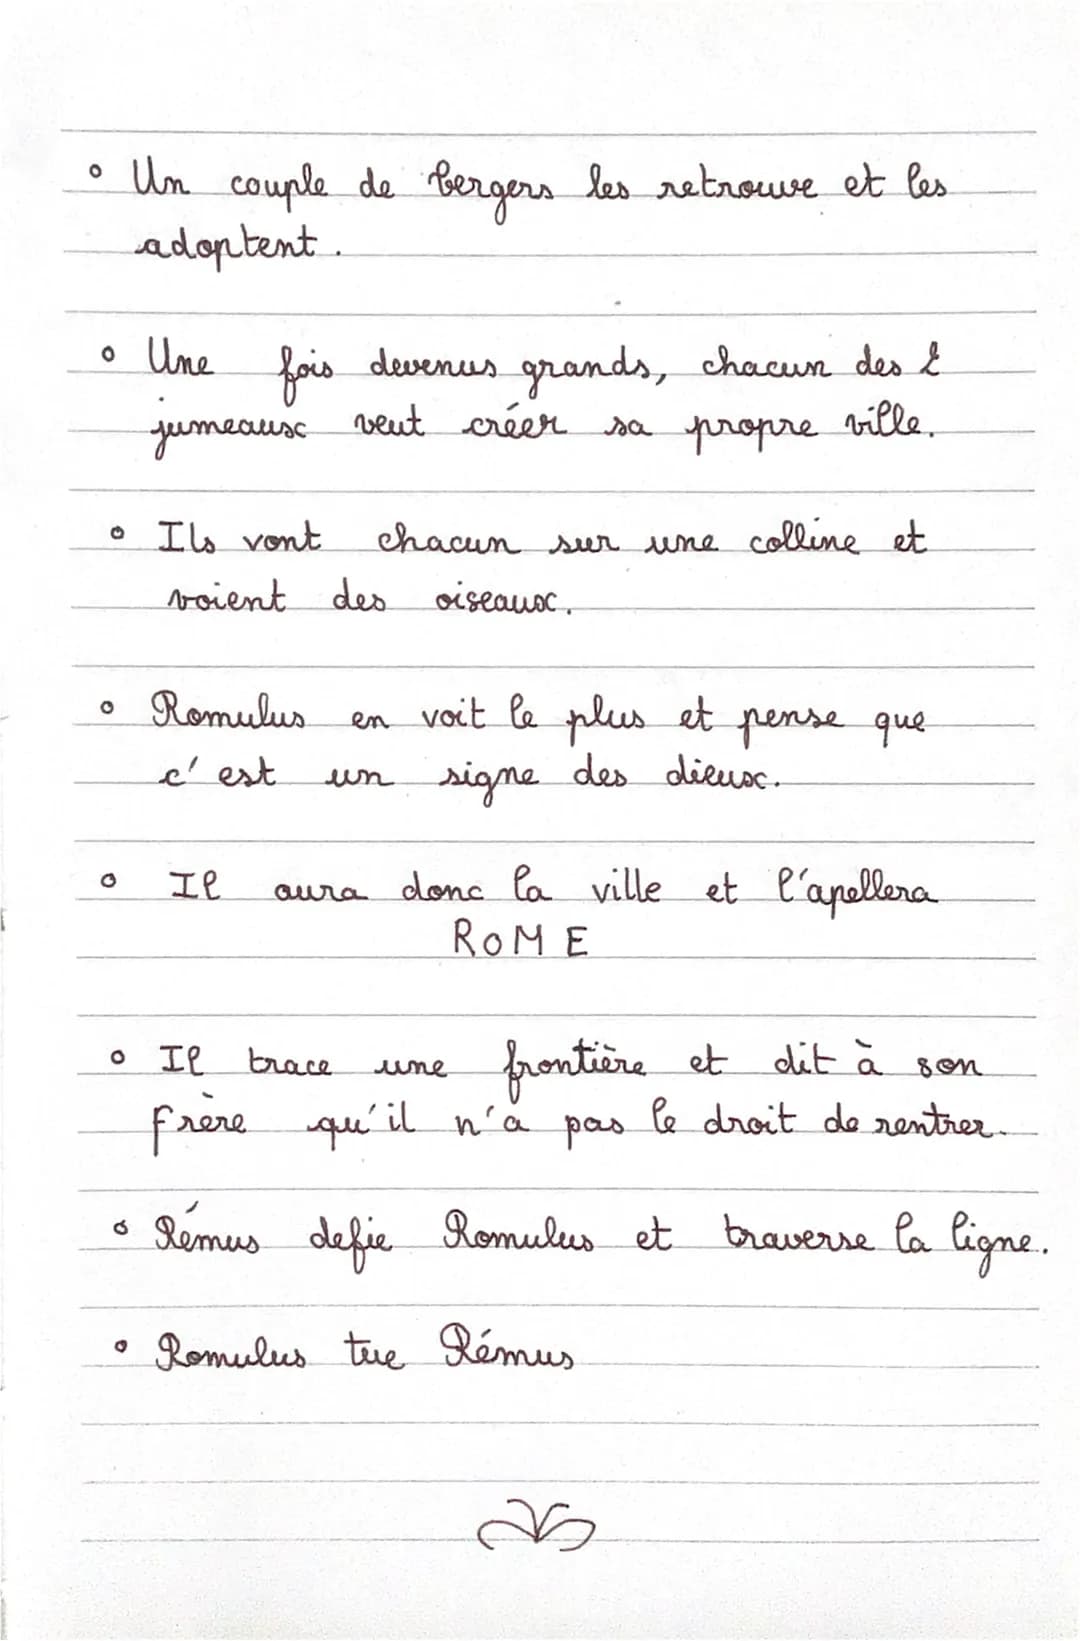 ° Un couple de bergers les retrouve et les
adoptent.
° Une fois devenus grands, chacun des 2
jumeaux veut créer sa propre ville.
° Ils vont chacun sur une colline et
voient des oiseaux.
° Romulus en voit le plus et pense que
c'est un signe des dieux.
° Il aura donc la ville et l'apellera
ROME
° Il trace une frontière et dit à son
frère qu'il n'a pas le droit de rentrer.
° Rémus defie Romulus et traverse la ligne.
° Romulus tue Rémus